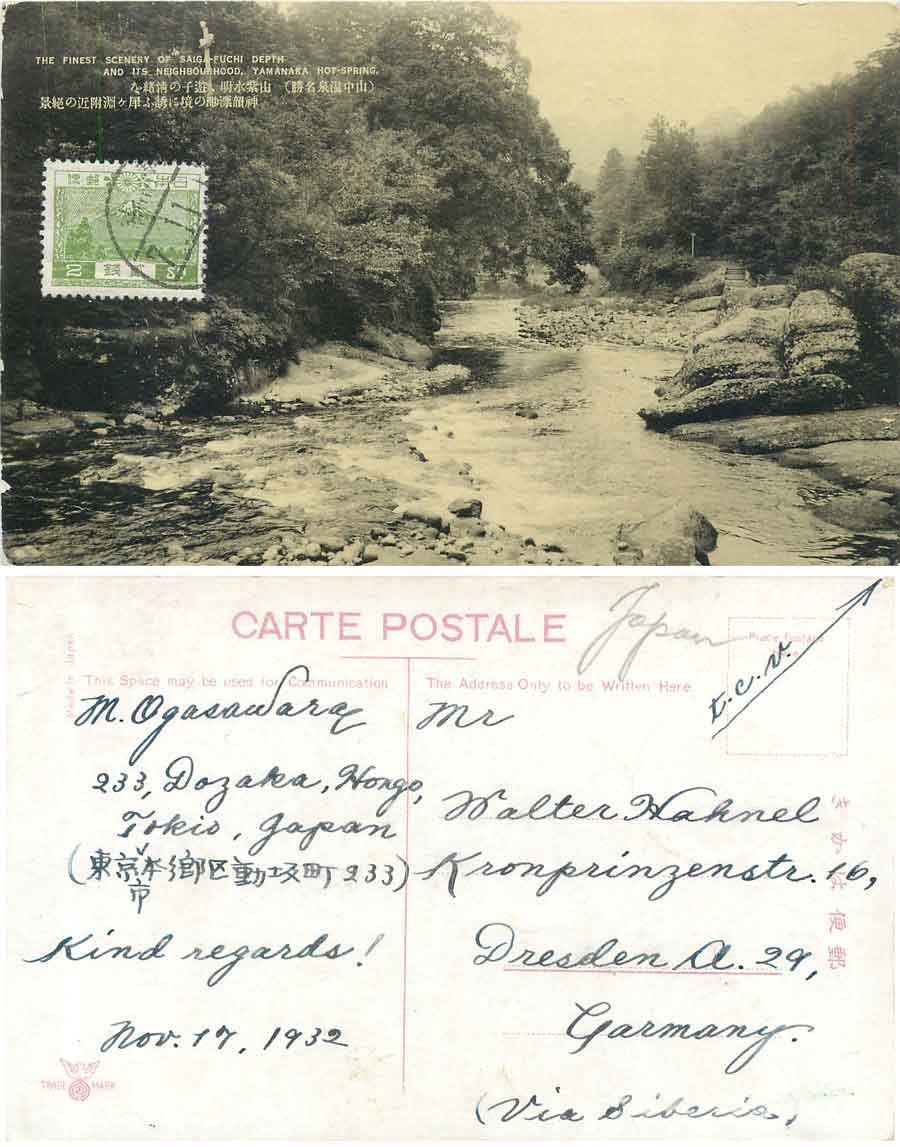 THE FINEST SCENERY OF SAIGA-FUCHI DEPTH
AND ITS NEIGHBOURHOOD, YAMANAKA HOT-SPRING.
(山中温泉名勝) 山紫水明、遊子の情緒を
神韻漂渺の境に誘ふ犀ヶ淵附近の絶景
大日本帝國郵便
2 貳錢 Sn
CARTE POSTALE
Japan
Place Postage
t.c.v.
Made in Japan
This Space may be used for Communication
The Address Only to be Written Here
M. Ogasawara
233, Dozaka, Hongo,
Tokio, Japan
(東京市本郷区動坂町 233)
Kind regards!
Nov. 17, 1932
TRADE MARK
Mr
Walter Hahnel
Kronprinzenstr. 16,
Dresden A. 29,
Garmany.
(Via Siberia,
きかは便郵